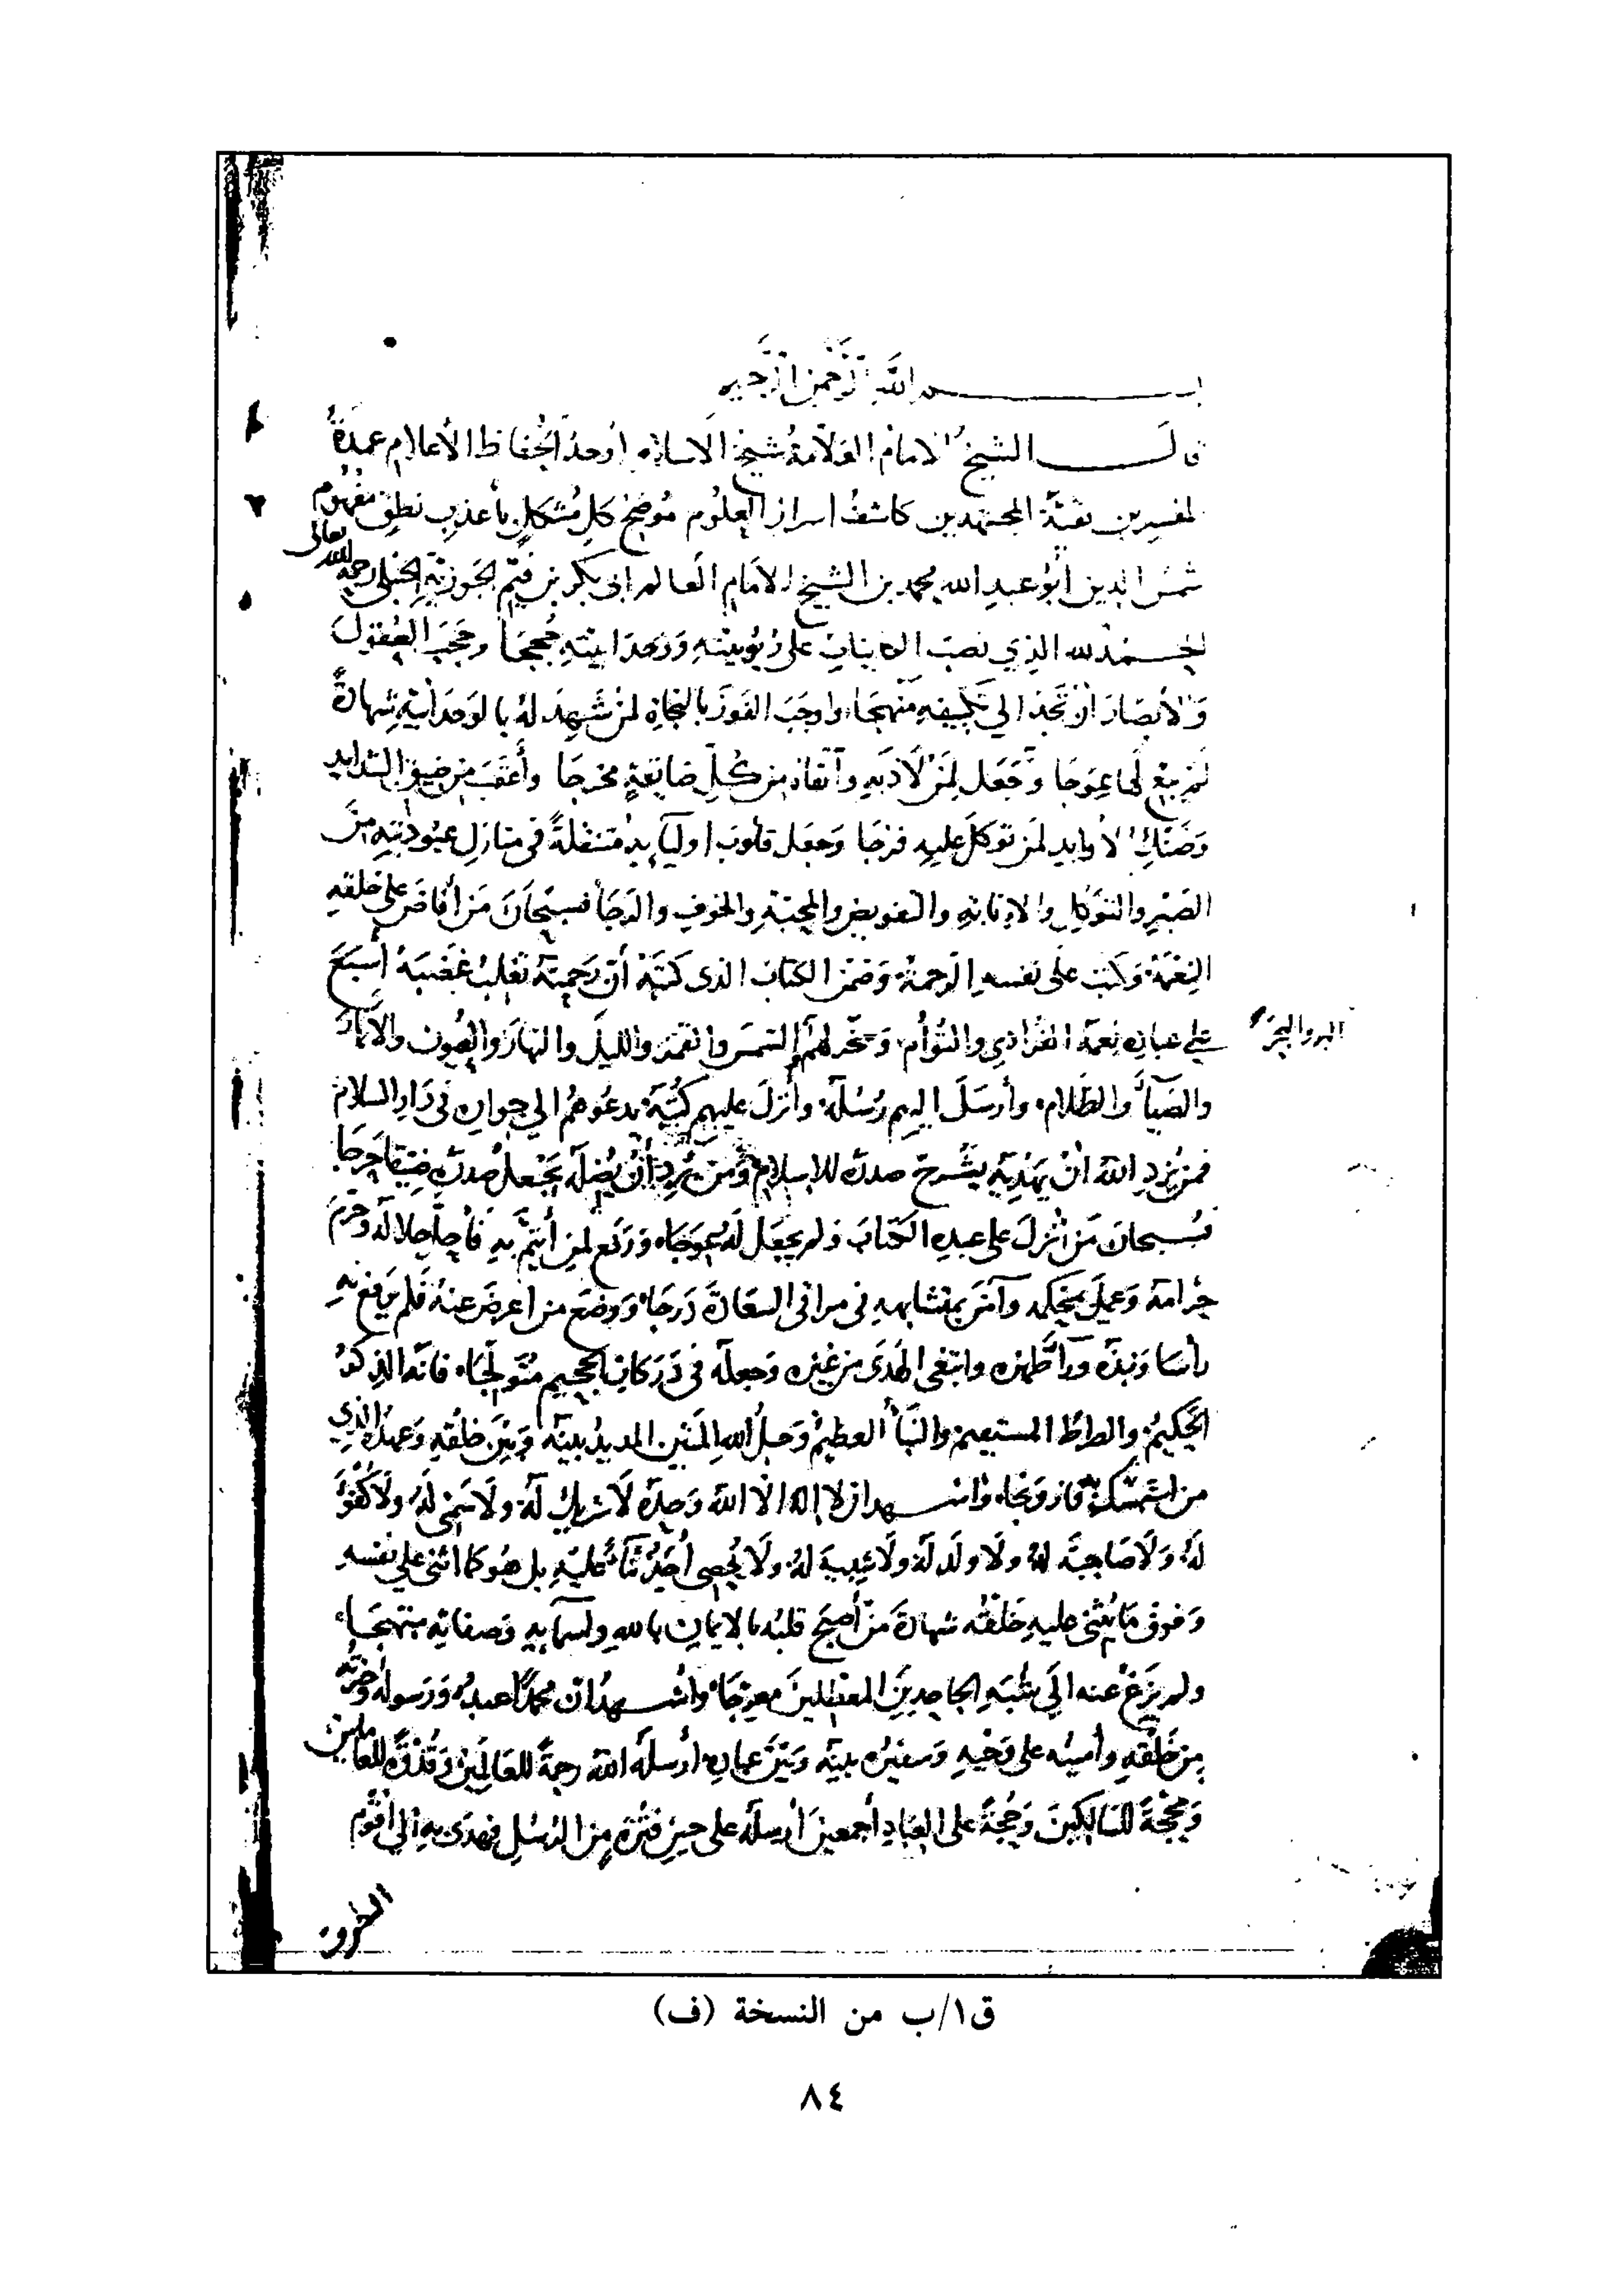 بسم الله الرحمن الرحيم
قال الشيخ الامام العلامة شيخ الاسلام اوحد الحفاظ الأعلام عمدة
المفسرين بقية المجتهدين كاشف اسرار العلوم موضح كل مشكل بأعذب نطق مفهوم
شمس الدين أبو عبد الله محمد بن الشيخ الامام العالم ابى بكر بن قيم الجوزية الحنبلى رحمه الله تعالى
الحمد لله الذي نصب الكاينات على ربوبيته ووحدانيته حججا وحجب العقول
والأبصار ان تجد الى تكييفه منهجا واوجب الفوز بالنجاة لمن شهد له بالوحدانية شهادة
لم يبغ لها عوجا وجعل لمن لاذ به واتقاه من كل ضايقة مخرجا وأعقب من ضيق الشدايد
وضنك الاوابد لمن توكل عليه فرجا وجعل قلوب اوليايه متنقلة في منازل عبوديته من
الصبر والتوكل والانابة والتفويض والمحبة والخوف والرجا فسبحان من أفاض على خلقه
النعمة وكتب على نفسه الرحمة وضمن الكتاب الذى كتبه أن رحمته تغلب غضبه أسبغ
على عباده نعمه الفرادى والتوأم وسخر لهم الشمس والقمر والليل والنهار والعيون والأنهار
البر والبحر
والضيآء والظلام وأرسل اليهم رسله وأنزل عليهم كتبه يدعوهم الى جواره فى دار السلام
فمن يرد الله أن يهديه يشرح صدره للاسلام ومن يرد أن يضله يجعل صدره ضيقا حرجا
فسبحان من أنزل على عبده الكتاب ولم يجعل له عوجا ورفع لمن أتم به فأحل حلاله وحرم
حرامه وعمل بمحكمه وآمن بمتشابهه فى مراقى السعادة درجا ووضع من اعرض عنه فلم يرفع به
رأسا ونبذه ورآء ظهره وابتغى الهدى من غيره وجعله في دركات الجحيم متولجا فانه الذكر
الحكيم والصراط المستقيم والنبأ العظيم وحبل الله المتين المديد بينه وبين خلقه وعهده الذي
من استمسك به فاز ونجا واشهد ان لا اله الا الله وحده لا شريك له ولا سمى له ولا كفؤ
له ولا صاحبة له ولا ولد له ولا شبيه له ولا يحصى أحد ثنآء عليه بل هو كما اثنى على نفسه
وفوق ما يثنى عليه خلقه شهادة من أصبح قلبه بالايمان بالله واسمآيه وصفاته مبتهجا
ولم يزغ عنه الى شبه الجاحدين المعطلين معرجا واشهد ان محمدا عبده ورسوله وخيرته
من خلقه وأمينه على وحيه وسفيره بينه وبين عباده أرسله الله رحمة للعالمين وقدوة للعاملين
ومحجة للسالكين وحجة على العباد أجمعين أرسله على حين فترة من الرسل فهدى به الى أقوم
الطرق
ق١/ب من النسخة (ف)
٨٤